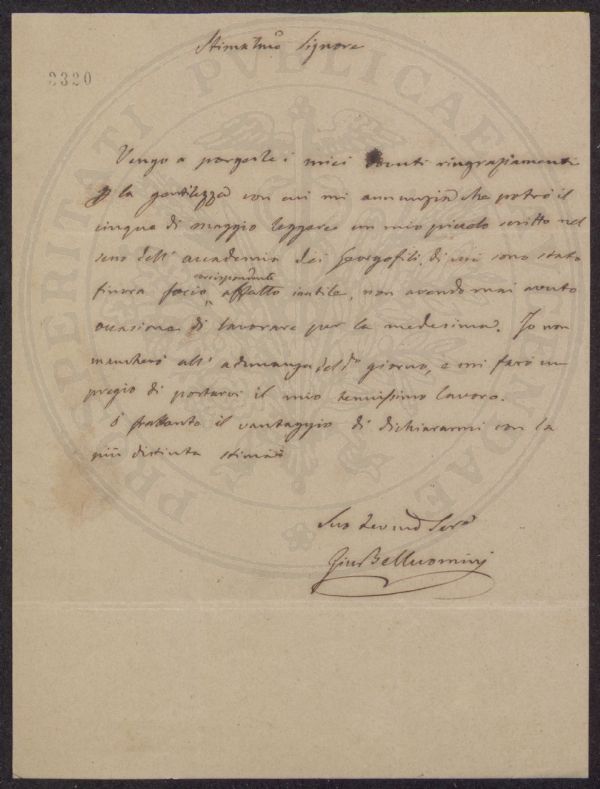 Stimatmo Signore
2320
Vengo a porgerle i miei dovuti ringraziamenti
p la gentilezza con cui mi annunzia che potrò il
cinque di maggio leggere un mio piccolo scritto nel
seno dell' accademia dei Georgofili, di cui sono stato
corrispondente
finora socio affatto inutile, non avendo mai avuto
occasione di lavorare per la medesima. Io non
mancherò all' adunanza del dto giorno, e mi farò un
pregio di portarvi il mio tenuissimo lavoro.
ò frattanto il vantaggio di dichiararmi con la
più distinta stima
Suo Devmo Serv
Gius Belluomini
PROSPERITATI PVBLICAE AVGENDAE